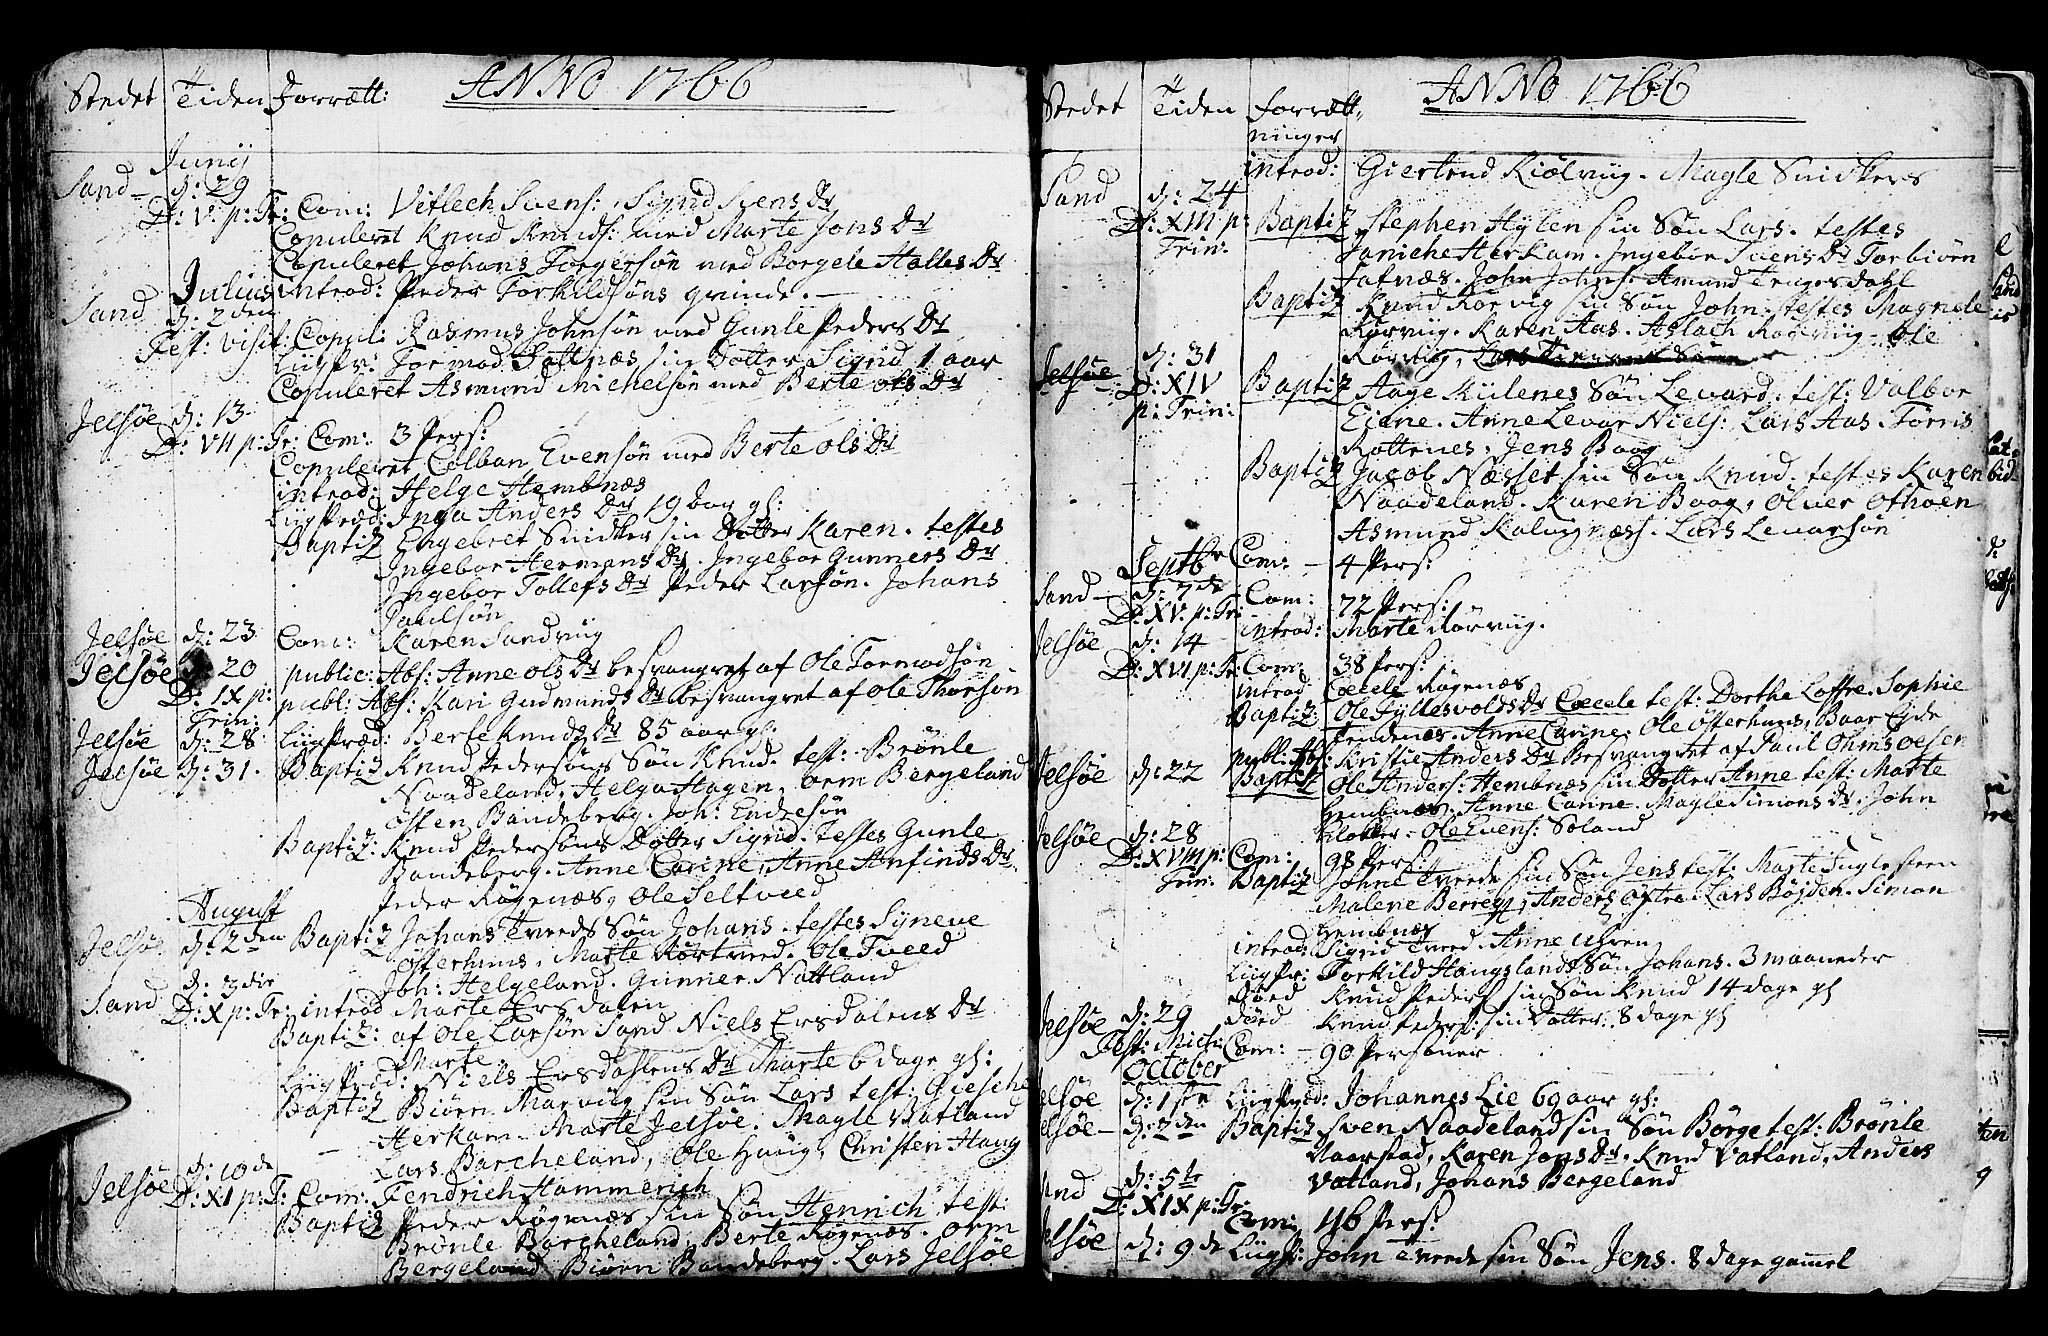 Stedet Tiden Forrætt: ANNO 1766
Junij
Sand d: 29
D: V. p: Tr: Com: Vitlech Svens: Sigrid Svens Dr
Copuleret Knud Knuds: med Marte Jons Dr
Copuleret Johans Torgersøn med Borgele Halles Dr
Sand Julius introd: Peder Torkildsøns qvinde.
d: 2den
Fest: Visit: Copul: Rasmus Johnsøn med Gunle Peders Dr
Liigpr: Tormod Sattnæs sin Dotter Sigrid 1 aar
Copuleret Asmund Michelsøn med Berte Ols Dr
Jelsøe d: 13
D: VII p: Tr: Com: 3 Pers:
Copuleret Colban Evensøn med Berte Ols Dr
introd: Helge Hembnæs
Liigpræd: Inga Anders Dr 19 aar gl:
Baptiz Engebret Snidker sin Dotter Karen. testes
Ingebor Hermans Dr. Ingebor Gunners Dr
Ingebor Tollefs Dr Peder Larsøn. Johans
Paulsøn
Jelsøe d: 23 Com: Karen Sandviig
Jelsøe 20 public: Abs: Anne Ols Dr besvangret af Ole Tormodsøn
D: IX p: Trin: publ: Abs: Kari Gudmunds Dr besvangret af Ole Thorsøn
Jelsøe d: 28 Liigpræd: Berte Knuds Dr 85 aar gl:
Jelsøe d: 31. Baptiz Knud Pedersøns Søn Knud. test: Brønle
Naadeland, Helga Hagen, orm Bergeland
Osten Bandeberg. Joh: Endresøn
Baptiz: Knud Pedersøns Dotter Sigrid. testes Gunle
Bandeberg. Anne Carine, Anne Anfinds Dr
Peder Røgenæs, Ole Seltveed
August
Jelsøe d: 2den Baptiz Johans Tveeds Søn Johans. testes Syneve
Osterhuus, Marte Kortveed. Ole Tveed
Joh: Helgeland. Gunner Nattland
d: 3die
Sand D: X p: Tr: introd Marte Ersdalen
Baptiz: af Ole Larsøn Sand Niels Ersdalens Dr
Marte
Liigpræd: Niels Ersdahlens Dr Marte 6 dage gl:
Baptiz Biørn Marviig sin Søn Lars test: Giesche
Herkam. Marte Jelsøe. Magle Vatland
Lars Barcheland, Ole Haug, Christen Haug
Jelsøe d: 10de
D: XI p: T: Com: Fendrich Hammerich
Baptiz Peder Røgenæs sin Søn Henrich test:
Brønle Barcheland, Berte Røgenæs. orm
Bergeland Biørn Bandeberg. Lars Jelsøe
Stedet Tiden Forrætt-
ninger ANNO 1766
introd: Giertrud Kiølviig. Magle Snidkers
Sand d: 24
D: XIII p: Trin: Baptiz Stephen Hylen sin Søn Lars. testes
Janiche Herkam. Ingebor Svens Dr Torbiørn
Fafnæs. John Johns: Amund Tengesdahl
Baptiz Knud Rørviig sin Søn John. testes Magnele
Rørviig. Karen Aas. Aslach Rørviig. Ole
Rørviig,
Jelsøe d: 31
D: XIV p: Trin: Baptiz Aage Kiilenes Søn Levard. test: Valbor
Eiene. Anne Levar Niels: Lars Aas. Torris
Rottenes. Jens Baag
Baptiz Jacob Næsset sin Søn Knud. testes Karen
Naadeland. Karen Baag, Oluer Othoen
Asmund Kalvignæs. Lars Levarsøn
Septbr Com: 4 Pers:
Sand d: 7de
D: XV. p: Tr: Com: 72 Pers:
Jelsøe d: 14 introd: Marte Rørviig.
D: XVI p: Tr: Com: 38 Pers:
introd Coecele Røgenæs
Baptiz: Ole Fyllesvolds Dr Coecele test: Dorthe Loffre. Sophie
Tendenæs. Anne Carine, Ole Østerhuus, Baar Eide
publ: Abs: Kristie Anders Dr Besvangret af Paul
Jelsøe d: 22 Baptiz Ole Anders: Hembnæs sin Dotter Anne test: Marte
Hembnæs. Anne Carine. Magle Simons Dr. John
Klokker. Ole Evens: Soland
Jelsøe d: 28
D: XVIII p: Trin: Com: 98 Pers:
Baptiz Johne Tveede sin Søn Jens test: Marte Fuglesteen
Malene Berrege, Anders Østre. Lars Bøjden. Simon
Hembnæs
introd: Sigrid Tveed. Anne Uhren
Liigpr: Torkild Haugslands Søn Johans. 3 maaneder
Døed Knud Peders: sin Søn Knud 14 dage gl
Jelsøe d: 29 døed Knud Peders: sin Dotter. 8 dage gl
Fest: Mich: Com: 90 Personer
October
Jelsøe d: 1ste Liigpræd: Johannes Lie 69 aar gl:
Jelsøe d: 2den Baptiz Sven Naadeland sin Søn Børge test: Brønle
Naarstad, Karen Jons Dr. Knud Vatland, Anders
Vatland, Johans Bergeland
Sand d: 5te
D: XIX p: Tr: Com: 46 Pers:
Jelsøe d: 9de Liigpr: John Tveede sin Søn Jens. 8 dage gammel